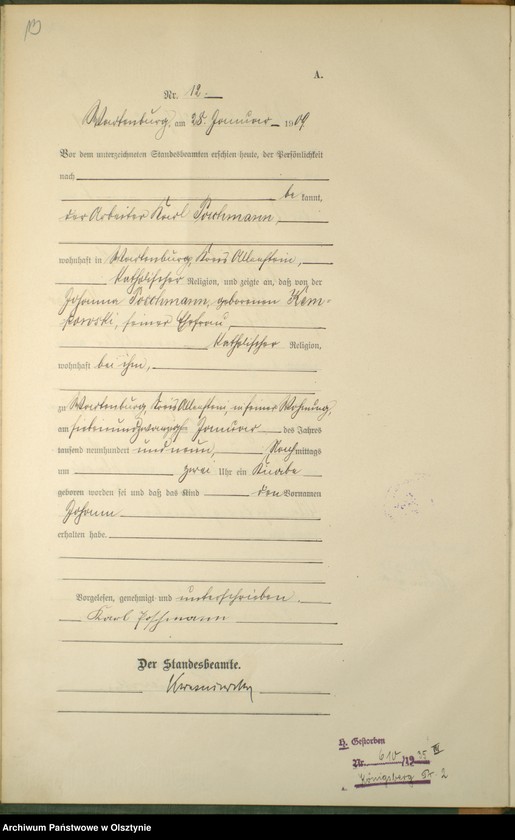 A.
Nr. 12.
Wartenburg, am 28. Januar 1909
Vor dem unterzeichneten Standesbeamten erschien heute, der Persönlichkeit
nach
be kannt,
der Arbeiter Karl Poschmann,
wohnhaft in Wartenburg, Kreis Allenstein,
katholischer Religion, und zeigte an, daß von der
Johanna Poschmann, geborenen Kem-
powski, seiner Ehefrau,
katholischer Religion,
wohnhaft bei ihm,
zu Wartenburg, Kreis Allenstein, in seiner Wohnung,
am siebenundzwanzigsten Januar des Jahres
tausend neunhundert und neun, Nachmittags
um zwei Uhr ein Knabe
geboren worden sei und daß das Kind den Vornamen
Johann
erhalten habe.
Vorgelesen, genehmigt und unterschrieben.
Karl Poschmann
Der Standesbeamte.
H. Gestorben
Nr. 610/19 35 III
Königsberg Pr. 2
Archiwum Państwowe w Olsztynie